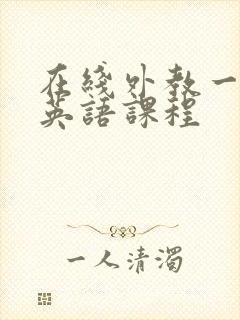 在綫外教一
英語課程
一人清濁